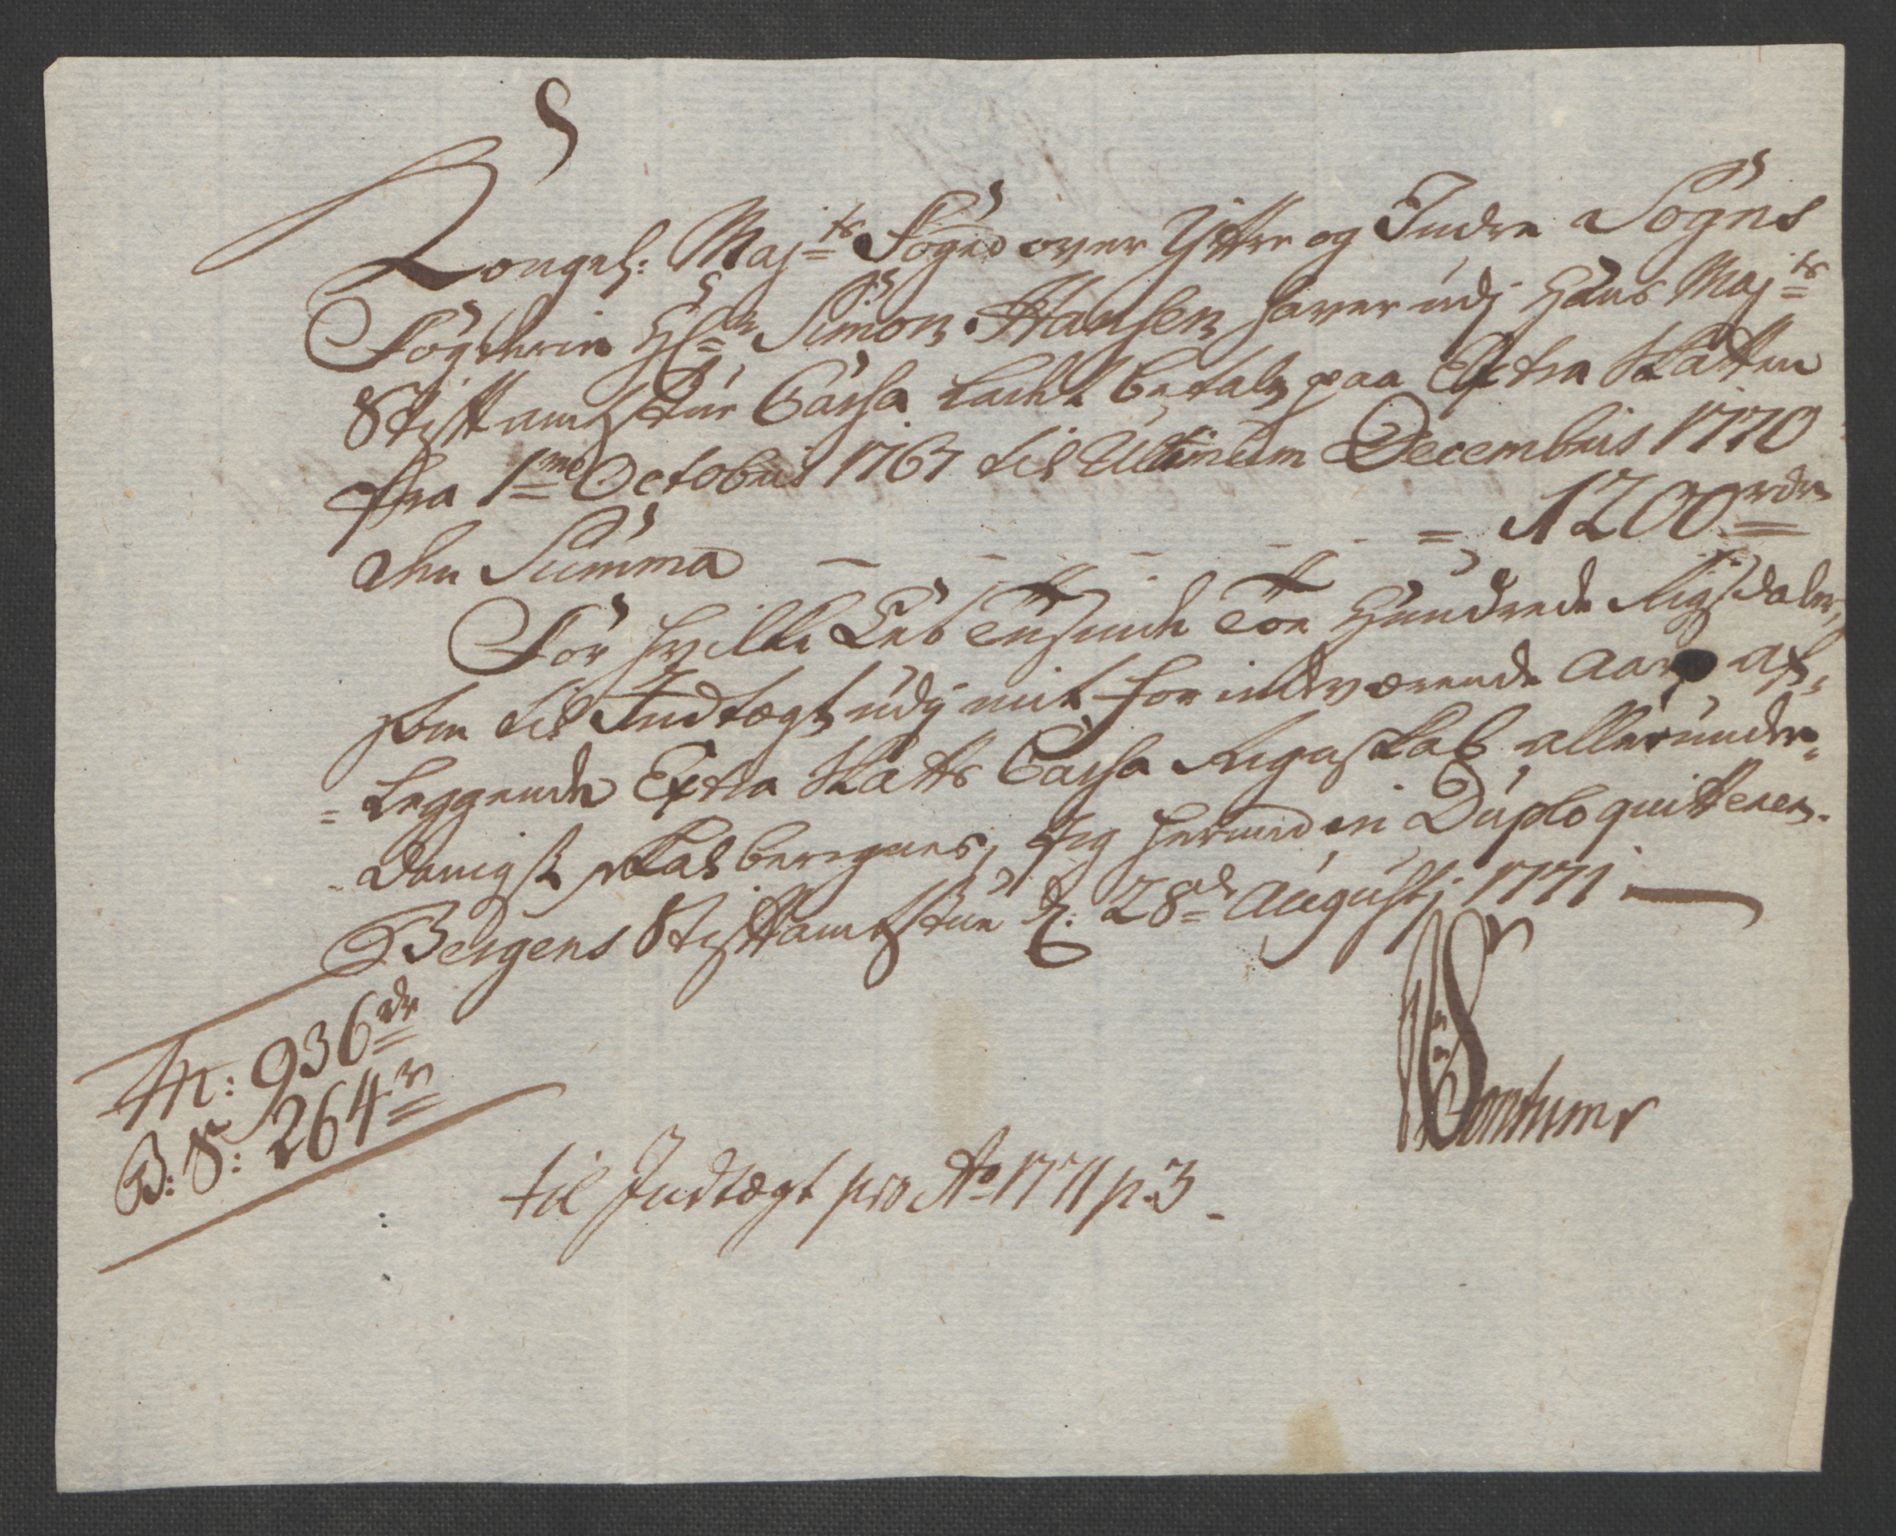 Kongel: Maj:ts Foged over Yttre og Indre Sogns
Fogderie Hr: Simon Hansen haver udj Hans Maj:ts
Stiftamtstue Cassa ladet betale paa Extra Skatten
fra 1me Octobris 1767 til Ultimum Decembris 1770
den Summa - - - - - = 1200 rdr
For hvilke Eet Tusende Toe Hundrede Rigsdaler,
som til Indtægt udj mit for indeværende Aar af-
=leggende Extra Skatts Cassa Regnskab allerunder-
-danigst skal beregnes, Jeg hermed in Duplo quitterer.
Bergens Stiftamtstue d: 28de Augustj 1771
N: 936 dr
B: S: 264 r
til Indtægt pro Ao 1771 p. 3